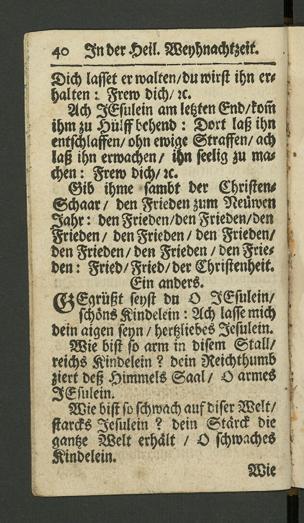 40 In der Heil. Weyhnachtzeit.
Dich lasset er walten/du wirst ihn er-
halten: Frew dich/ ꝛc.
Ach JEsulein am letzten End/kom̃
ihm zu Hülff behend: Dort laß ihn
entschlaffen/ohn ewige Straffen/ach
laß ihn erwachen/ ihn seelig zu ma-
chen: Frew dich/ ꝛc.
Gib ihme sambt der Christen-
Schaar/ den Frieden zum Neüwen
Jahr: den Frieden/den Frieden/den
Frieden/ den Frieden/ den Frieden/
den Frieden/ den Frieden/ den Frie-
den: Fried/Fried/der Christenheit.
Ein anders.
GEgrüßt seyst du O JEsulein/
schöns Kindelein: Ach lasse mich
dein aigen seyn/hertzliebes Jesulein.
Wie bist so arm in disem Stall/
reichs Kindelein? dein Reichthumb
ziert deß Himmels Saal/ O armes
JEsulein.
Wie bist so schwach auf diser Welt/
starcks Jesulein? dein Stärck die
gantze Welt erhält/ O schwaches
Kindelein.
Wie